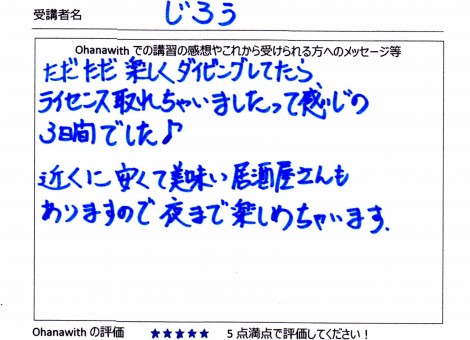 受講者名 じろう
Ohanawith での講習の感想やこれから受けられる方へのメッセージ等
ただただ楽しくダイビングしてたら、
ライセンス取れちゃいましたって感じの
3日間でした♪
近くに安くて美味い居酒屋さんも
ありますので夜まで楽しめちゃいます.
Ohanawith の評価 ★★★★★ 5 点満点で評価してください！